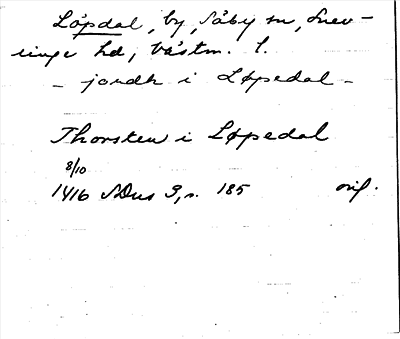 Löpdal, by, Säby sn, Snev-
inge hd, Västm. l.
- jordh i Løpedal -
Thorsten i Løpedal
8/10
1416 SDns 3, s. 185 orig.